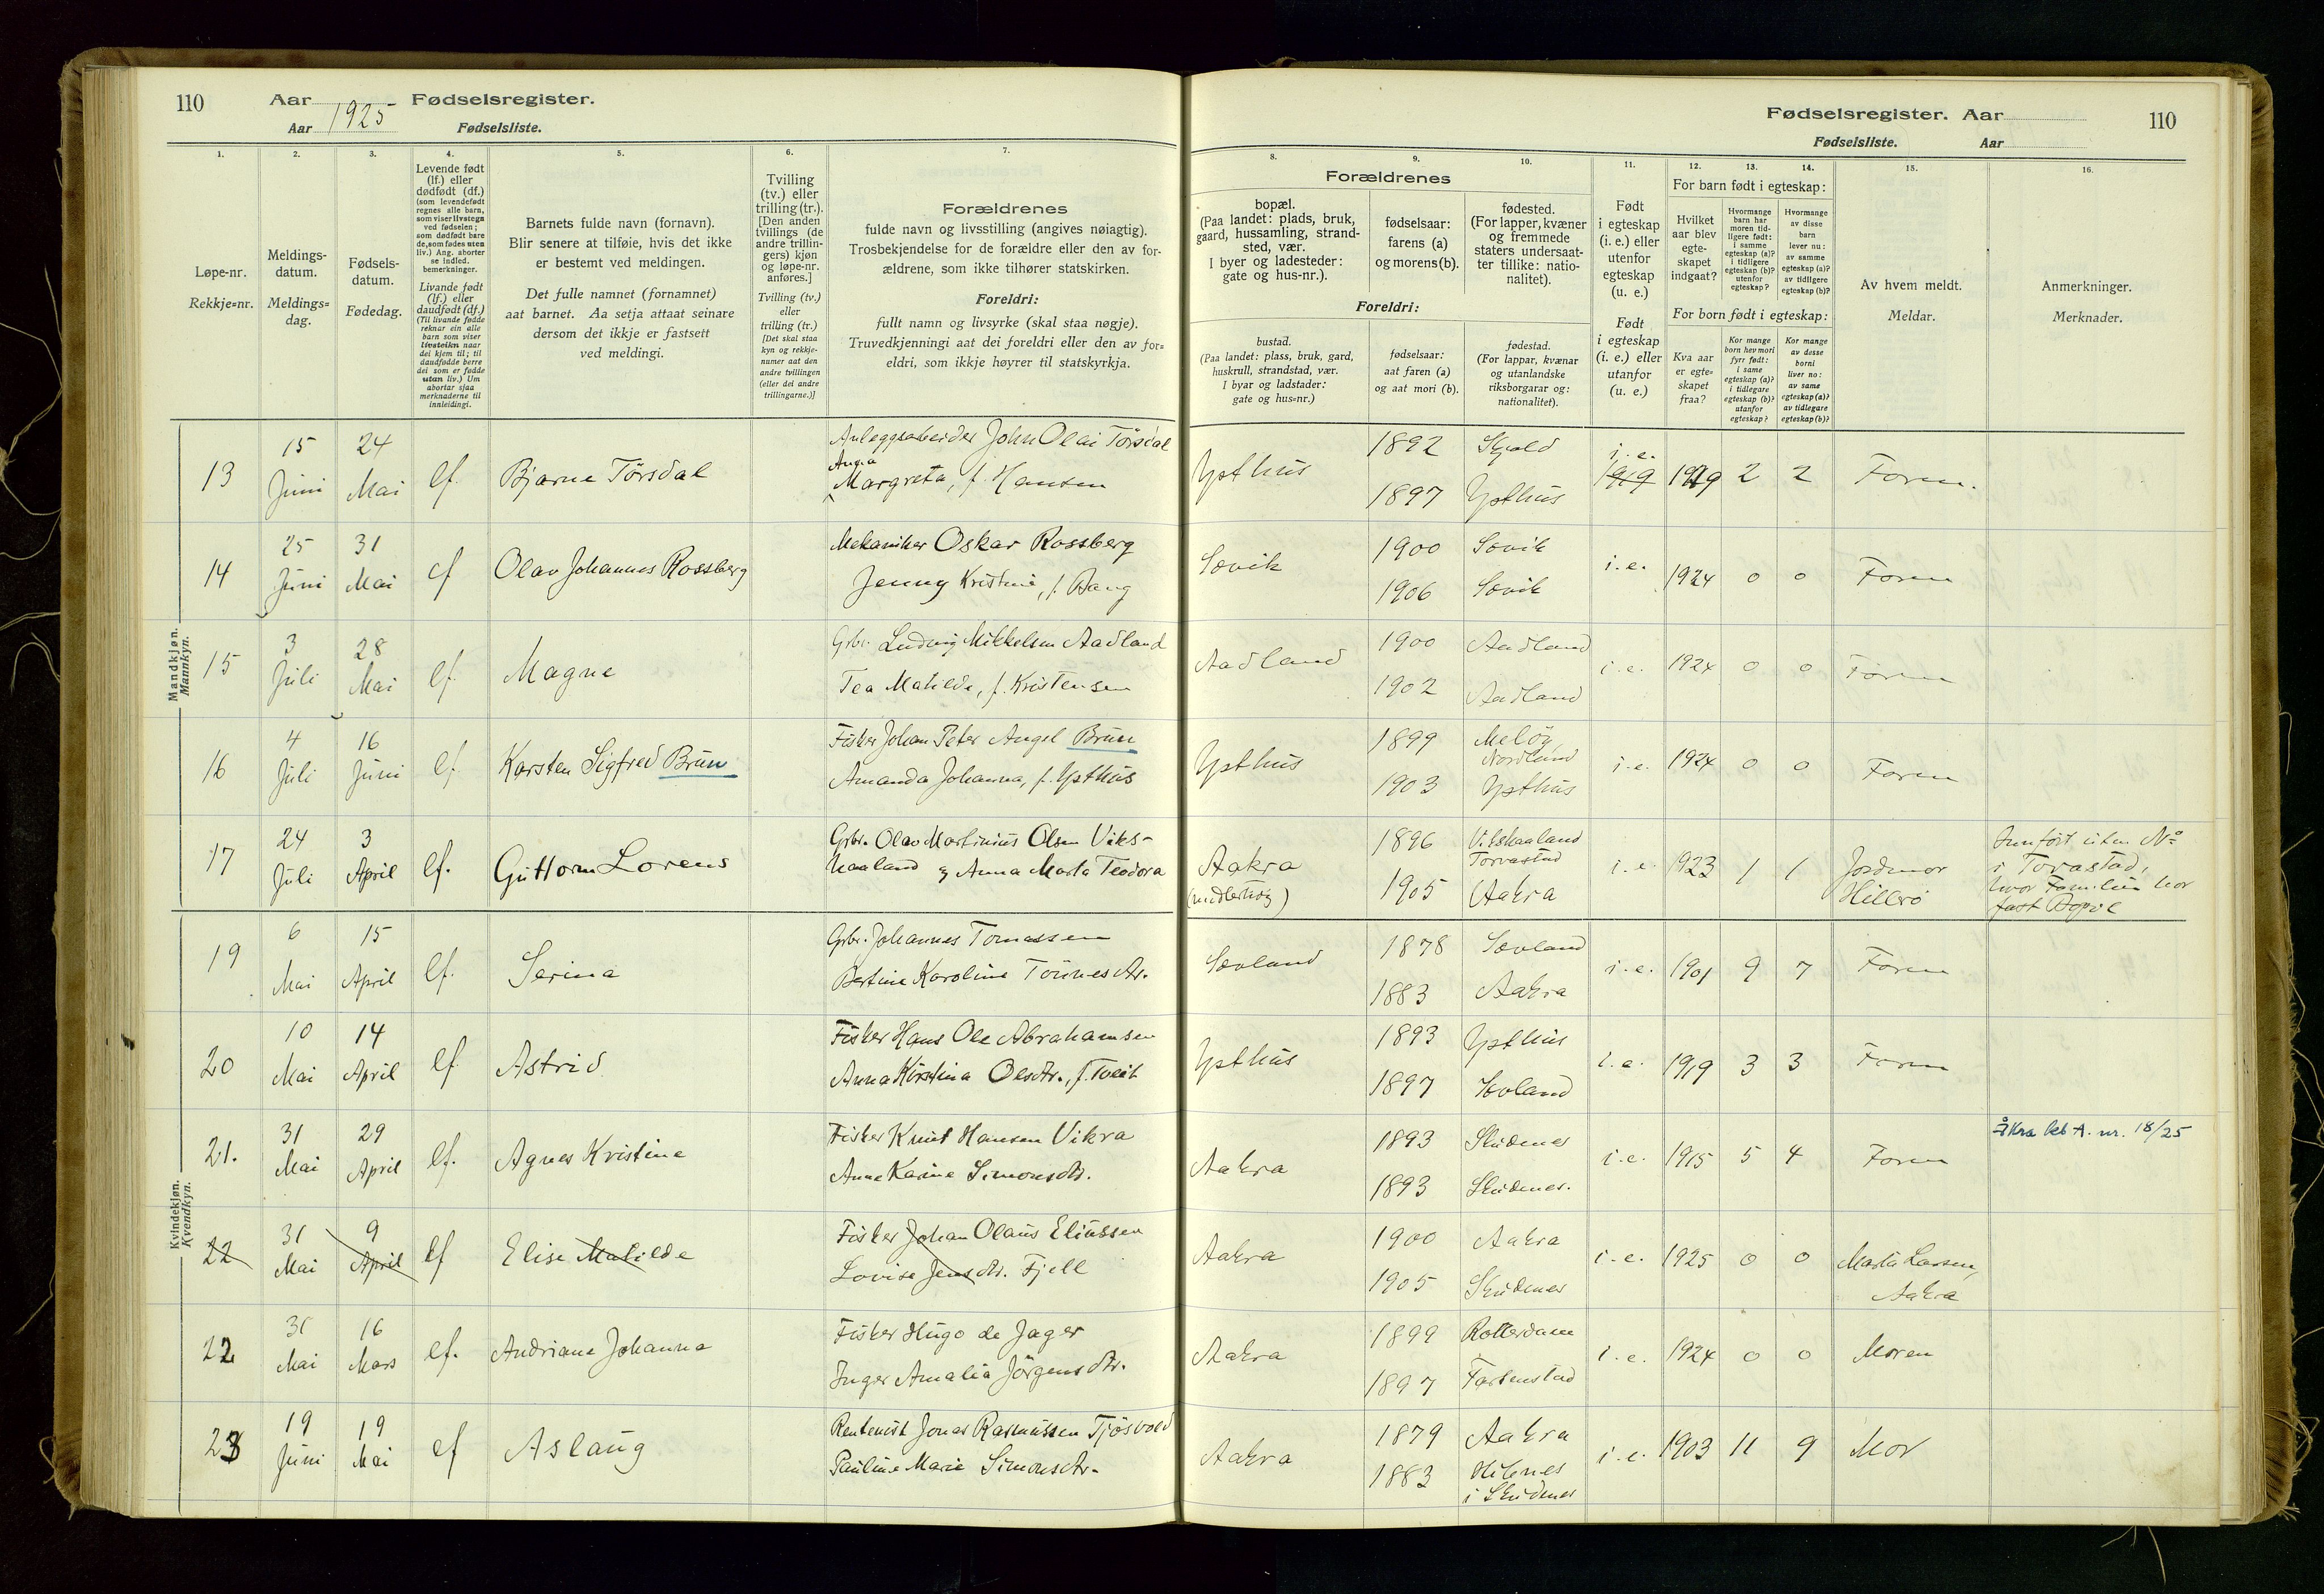 110 Aar 1925 Fødselsregister.
Aar Fødselsliste.
Fødselsregister. Aar 110
Fødselsliste. Aar
1. 2. 3. 4. 5. 6. 7. 8. 9. 10. 11. 12. 13. 14. 15. 16.
Løpe-nr.
Rekkje=nr.
Meldings-
datum.
Meldings=
dag.
Fødsels-
datum.
Fødedag.
Levende født
(lf.) eller
dødfødt (df.)
(som levendefødt
regnes alle barn,
som viser livstegn
ved fødselen;
som dødfødt bare
de, som fødes uten
liv.) Ang. aborter
se indled.
bemerkninger.
Livande født
(lf.) eller
daudfødt (df.)
(Til livande fødde
reknar ein alle
barn som viser
livsteikn naar
dei kjem til; til
daudfødde berre
dei som er fødde
utan liv.) Um
abortar sjaa
merknaderne til
innleidingi.
Barnets fulde navn (fornavn).
Blir senere at tilføie, hvis det ikke
er bestemt ved meldingen.
Det fulle namnet (fornamnet)
aat barnet. Aa setja attaat seinare
dersom det ikkje er fastsett
ved meldingi.
Tvilling
(tv.) eller
trilling (tr.).
[Den anden
tvillings (de
andre trillin-
gers) kjøn
og løpe-nr.
anføres.]
Tvilling (tv.)
eller
trilling (tr.)
[Det skal staa
kyn og rekkje-
numer aat den
andre tvillingen
(eller dei andre
trillingarne.)]
Forældrenes
fulde navn og livsstilling (angives nøiagtig).
Trosbekjendelse for de forældre eller den av for-
ældrene, som ikke tilhører statskirken.
Foreldri:
fullt namn og livsyrke (skal staa nøgje).
Truvedkjenningi aat dei foreldri eller den av for=
eldri, som ikkje høyrer til statskyrkja.
Forældrenes
bopæl.
(Paa landet: plads, bruk,
gaard, hussamling, strand-
sted, vær.
I byer og ladesteder:
gate og hus-nr.).
fødselsaar:
farens (a)
og morens (b).
fødested.
(For lapper, kvæner
og fremmede
staters undersaat-
ter tillike: natio-
nalitet).
Foreldri:
bustad.
(Paa landet: plass, bruk, gard,
huskrull, strandstad, vær.
I byar og ladstader:
gate og hus=nr.)
fødselsaar:
aat faren (a)
og aat mori (b).
fødestad.
(For lappar, kvænar
og utanlandske
riksborgarar og:
nationalitet).
Født
i egteskap
(i. e.) eller
utenfor
egteskap
(u. e.)
Født
i egteskap
(i. e.) eller
utanfor
(u. e.)
For barn født i egteskap:
Hvilket
aar blev
egte-
skapet
indgaat?
Hvormange
barn har
moren tid-
ligere født:
i samme
egteskap (a)?
i tidligere
egteskap (b)?
utenfor
egteskap?
Hvormange
av disse
barn
lever nu:
av samme
egteskap (a)?
av tidligere
egteskap (b)?
For born født i egteskap:
Kva aar
er egte=
skapet
fraa?
Kor mange
born hev mori
fyrr født:
i same
egteskap (a)?
i tidlegare
egteskap (b)?
utanfor
egteskap?
Kor mange
av desse
borni
liver no:
av same
egteskap (a)?
av tidlegare
egteskap (b)?
Av hvem meldt.
Meldar.
Anmerkninger.
Merknader.
Mandkjøn.
Mannkyn.
13 15 Juni 24 Mai lf. Bjarne Törsdal
Anleggsarbeider John Olai Törsdal
Anna
Margreta, f. Hansen
Ypthus 1892 Skjold i. e. 1919 1919 2 2 Faren.
1897 Ypthus
14 25 Juni 31 Mai lf Olav Johannes Rossberg
Mekaniker Oskar Rossberg
Jenny Kristine, f. Bang
Sævik 1900 Sævik i. e. 1924 0 0 Faren
1906 Sævik
15 3 Juli 28 Mai lf. Magne
Grbr. Ludvig Mikkelsen Aadland
Tea Matilde, f. Kristensen
Aadland 1900 Aadland i. e. 1924 0 0 Faren
1902 Aadland
16 4 Juli 16 Juni lf Karsten Sigfred Brun
Fisker Johan Peter Angel Brun
Amanda Johanna, f. Ypthus
Ypthus 1899 Meløy, Nordland i. e. 1924 0 0 Faren
1903 Ypthus
17 24 Juli 3 April lf. Guttorm Lorens
Grbr. Olav Martinius Olsen Viks-
haaland og Anna Marta Teodora
Aakra 1896 Torvastad i. e. 1923 1 1 Jordmor Hillerø
1905 Aakra
Innført uten No
i Torvastad,
hvor Familien har
fast Bopæl
Kvindekjøn.
Kvendkyn.
19 6 Mai 15 April lf. Serina
Grbr. Johannes Tomassen
Bertine Karoline Tönnesdtr.
Sævland 1878 Sævland i. e. 1901 9 7 Faren
1883 Aakra
20 10 Mai 14 April lf Astrid
Fisker Hans Ole Abrahamsen
Anna Kirstina Olsdtr., f. Tveit
Ypthus 1893 Ypthus i. e. 1919 3 3 Faren
1897
21. 31 Mai 29 April lf. Agnes Kristine
Fisker Knut Hansen Vikra
Anne Karine Simonsdtr.
Aakra 1893 Skudenes i. e. 1915 5 4 Faren
1893 Skudenes.
Åkra kb A. nr. 18/25
22 31 Mai 9 April lf Elise Matilde
Fisker Johan Olaus Eliassen
Lovise Jensdtr. Fjell
Aakra 1900 Aakra i. e. 1925 0 0 Marta Larsen,
1905 Skudenes Aakra
22 31 Mai 16 Mars lf. Andriane Johanna
Fisker Hugo de Jager
Inger Amalia Jörgensdtr.
Aakra 1899 Rotterdam i. e. 1924 0 0 Moren
1897
23 19 Juni 19 Mai lf Aslaug
Rentenist Jonas Rasmussen Tjösvold
Pauline Marie Simonsdtr.
Aakra 1879 Aakra i. e. 1903 11 9 Mor
1883 i Skudenes